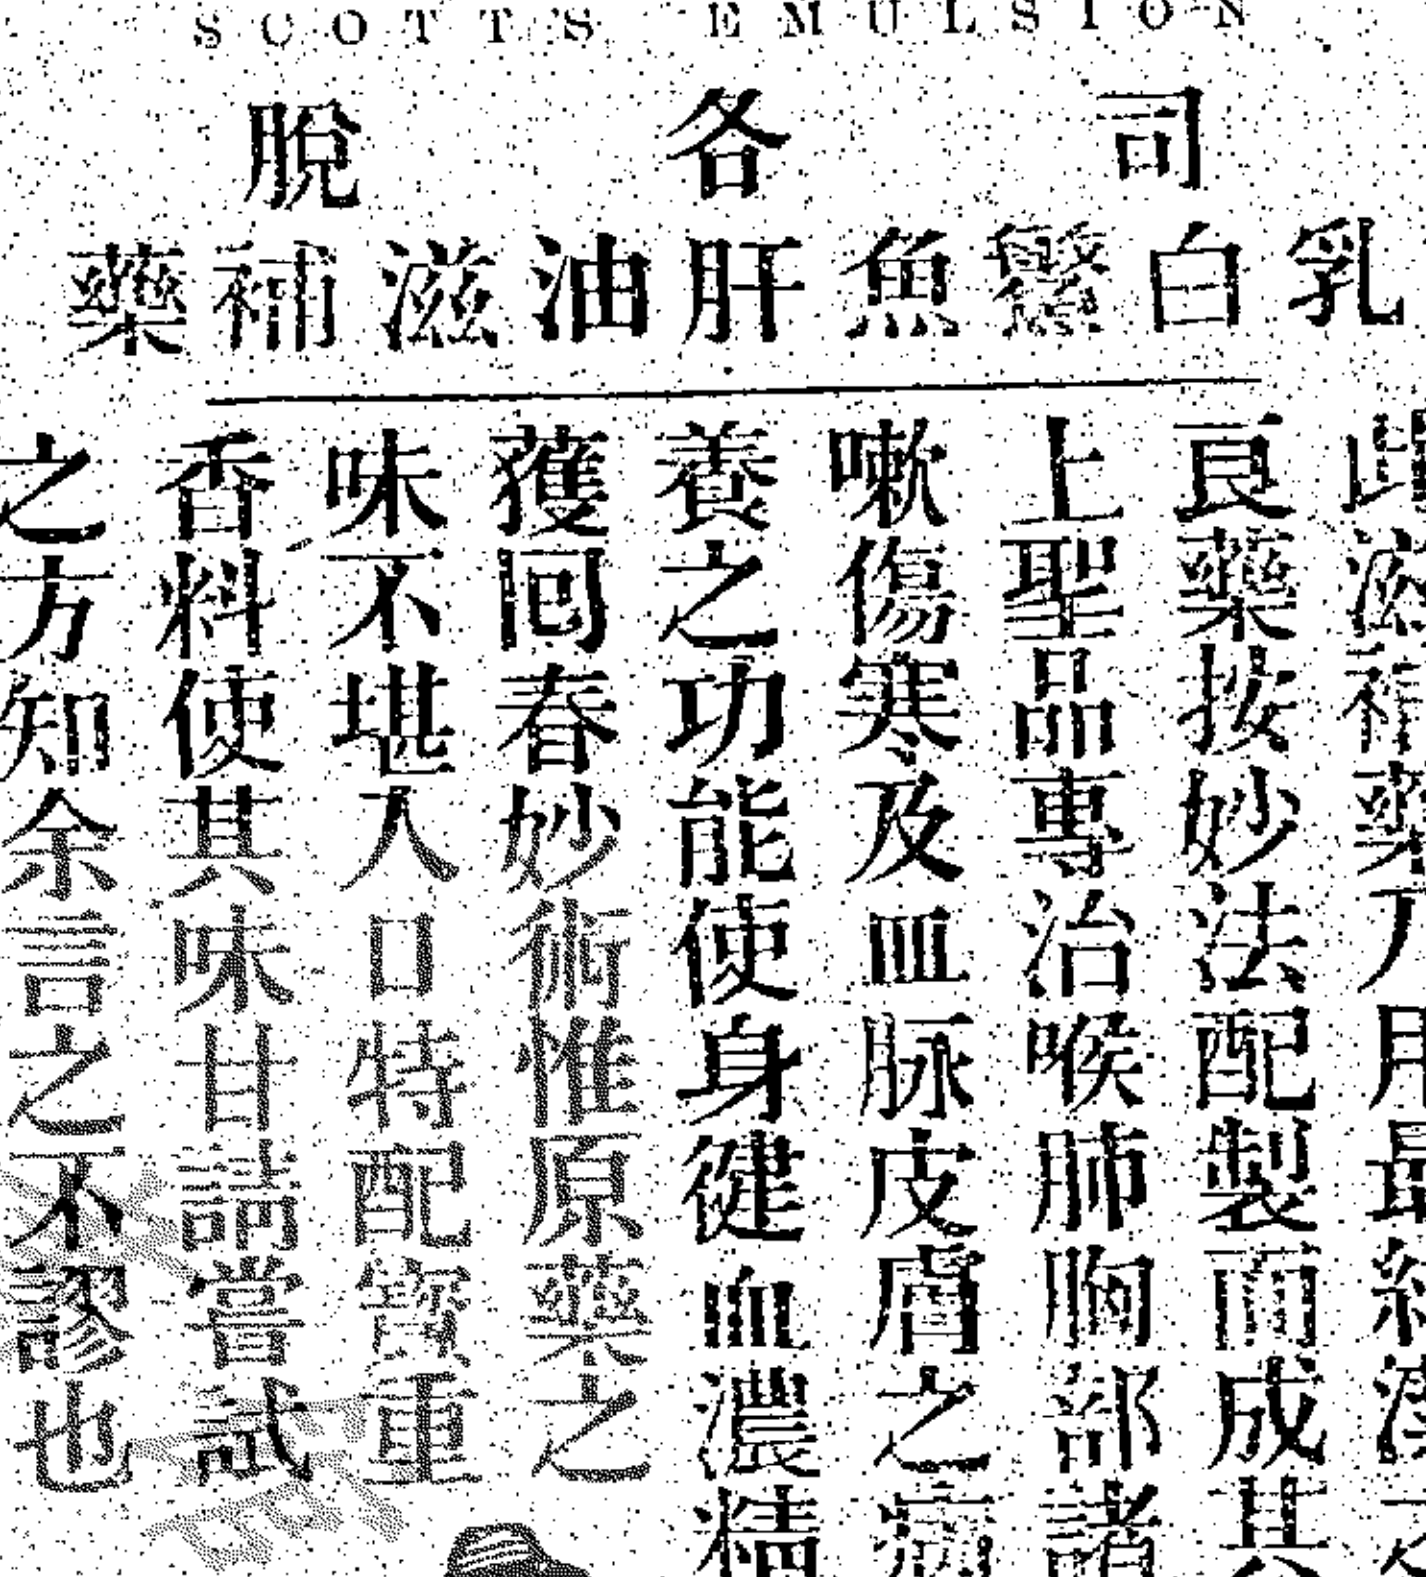 SCOTT'S EMULSION
司各脫
乳白鰵魚肝油滋補藥
此滋補藥乃用最
良藥按妙法配製而成其
上聖品專治喉肺胸部諸
嗽傷寒及血脉皮膚之病
養之功能使身健血濃精
獲回春妙術惟原藥之
味不堪人口特配寶重
香料使其味甘請嘗試
之方知余言之不謬也